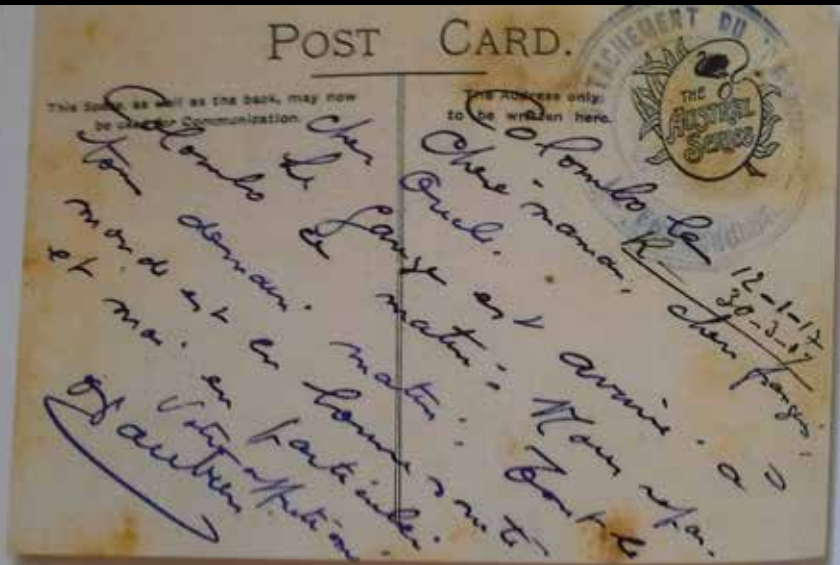 POST CARD.
This Space, as well as the back, may now
be used for Communication.
The Address only
to be written here.
THE
AUSTRAL
SERIES
TACHEMENT DU
Colombo le
12-1-17
R 30-3-17
Chère maman, cher François,
cher Oncle.
Le Gange est arrivé à
Colombo ce matin. Nous
demain matin. Tout le
monde est en bonne santé
et moi en particulier